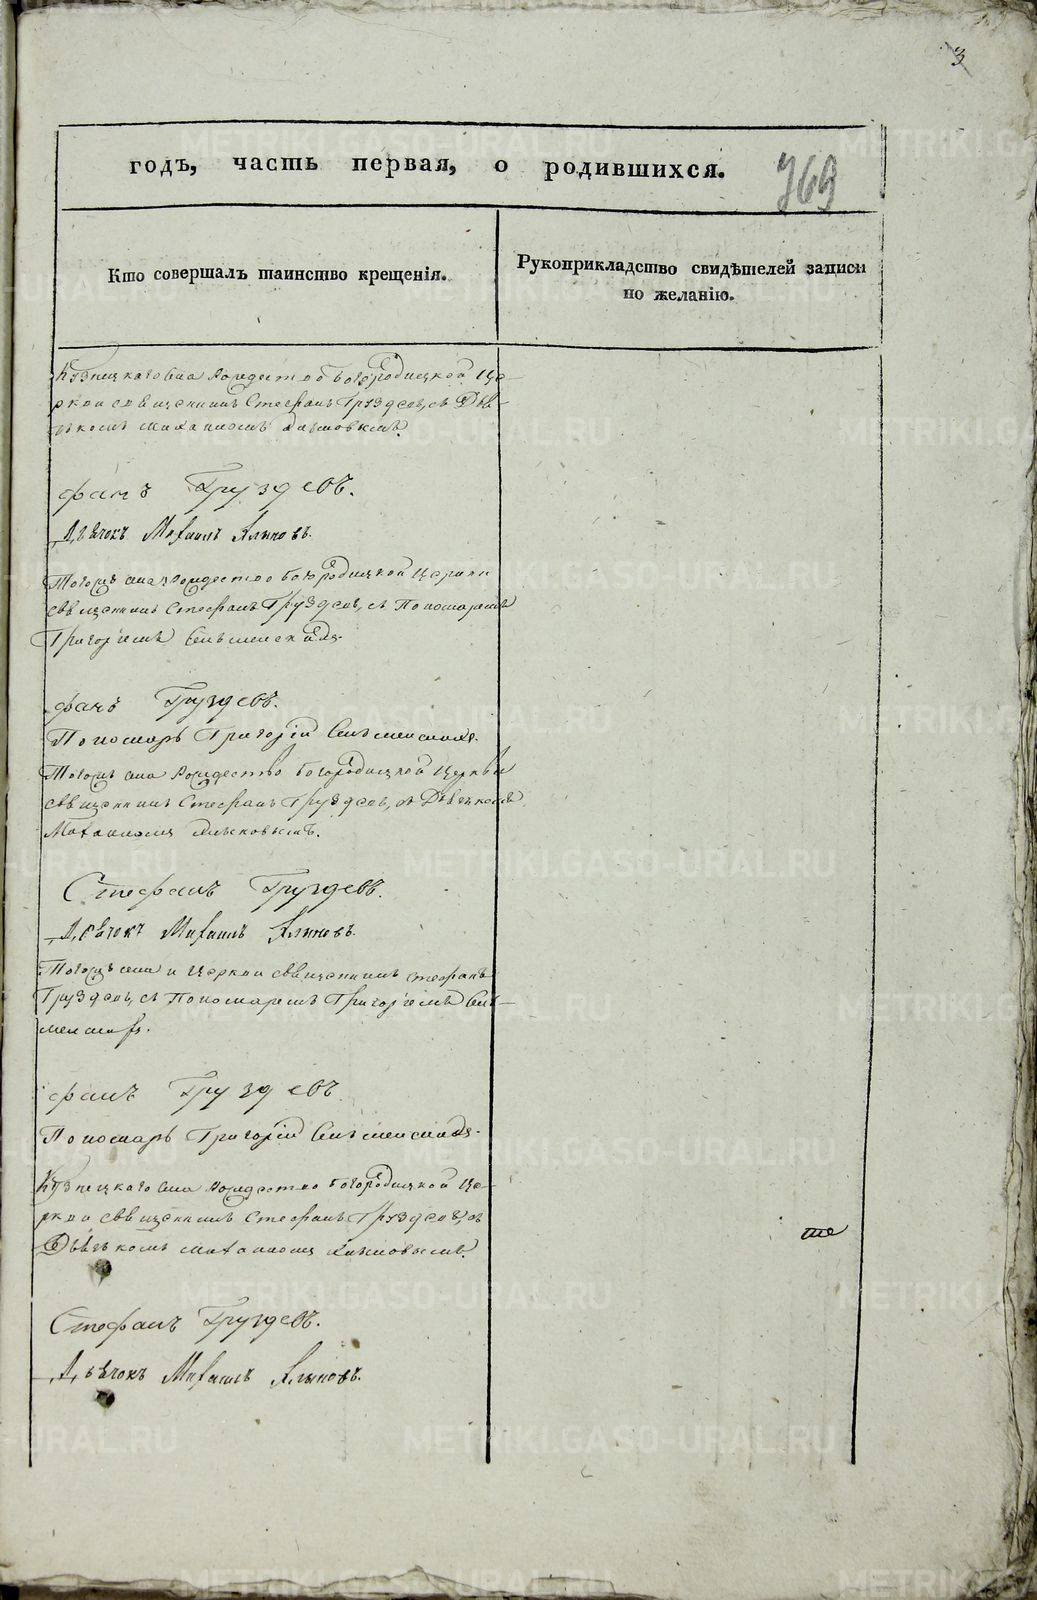 3
годъ, часть первая, о родившихся.
769
Кто совершалъ таинство крещенія.
Рукоприкладство свидѣтелей записи
по желанію.
Кузнецкаго села Рождество Богородицкой Це-
ркви священникъ Стефанъ Груздевъ, съ Дья-
чкомъ Михаиломъ
фанъ Груздевъ.
Дьячокъ Михаилъ
Тогожъ села Рождество Богородицкой Церкви
священникъ Стефанъ Груздевъ, съ Пономаремъ
Григоріемъ
фанъ Груздевъ.
Пономарь Григорій
Тогожъ села Рождество Богородицкой Церкви
священникъ Стефанъ Груздевъ, съ Дьячкомъ
Михаиломъ
Стефанъ Груздевъ.
Дьячокъ Михаилъ
Тогожъ села и Церкви священникъ Стефанъ
Груздевъ, съ Пономаремъ Григоріемъ
фанъ Груздевъ.
Пономарь Григорій
Кузнецкаго села Рождество Богородицкой Це-
ркви священникъ Стефанъ Груздевъ, съ
Дьячкомъ Михаиломъ
те
Стефанъ Груздевъ.
Дьячокъ Михаилъ
METRIKI.GASO-URAL.RU